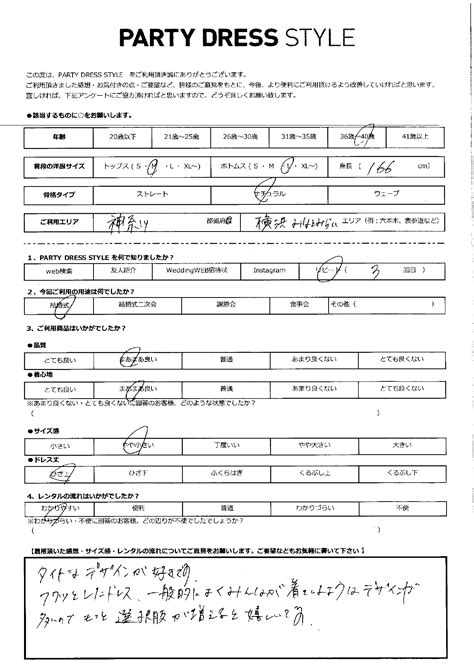 PARTY DRESS STYLE
この度は、PARTY DRESS STYLE をご利用頂き誠にありがとうございます。
ご利用頂きました感想・お気付きの点・ご要望など、皆様のご意見をもとに、今後、より便利にご利用頂けるよう改善していければと思います。
宜しければ、下記アンケートにご協力頂ければと思いますので、どうぞ宜しくお願い致します。
●該当するものに○をお願いします。
年齢 20歳以下 21歳～25歳 26歳～30歳 31歳～35歳 36歳～40歳 41歳以上
普段の洋服サイズ トップス（ S ・ M ・ L ・ XL～） ボトムス（ S ・ M ・ L ・ XL～） 身長 （ 166 cm）
骨格タイプ ストレート ナチュラル ウェーブ
ご利用エリア 神奈川 都道府県 横浜みなとみらい エリア（例：六本木、表参道など）
1．PARTY DRESS STYLE を何で知りましたか？
web検索 友人紹介 WeddingWEB招待状 Instagram リピート（ 3 回目 ）
2．今回ご利用の用途は何でしたか？
結婚式 結婚式二次会 謝恩会 食事会 その他（ ）
3．ご利用商品はいかがでしたか？
●品質
とても良い まあまあ良い 普通 あまり良くない とても良くない
●着心地
とても良い まあまあ良い 普通 あまり良くない とても良くない
※あまり良くない・とても良くないに回答のお客様、どのような状態でしたか？
（ ）
●サイズ感
小さい やや小さい 丁度いい やや大きい 大きい
●ドレス丈
ひざ上 ひざ下 ふくらはぎ くるぶし上 くるぶし下
4．レンタルの流れはいかがでしたか？
わかりやすい 便利 普通 わかりづらい 不便
※わかりづらい・不便に回答のお客様、どの辺りが不便でしたでしょうか？
（ ）
【着用頂いた感想・サイズ感・レンタルの流れについてご意見をお願いします。ご要望などもお気軽に書いて下さい】
タイトなデザインが好きです。
フワッとしたドレス、一般的によくみんなが着ているようなデザインが
多いので もっと選択肢が増えると嬉しいです。